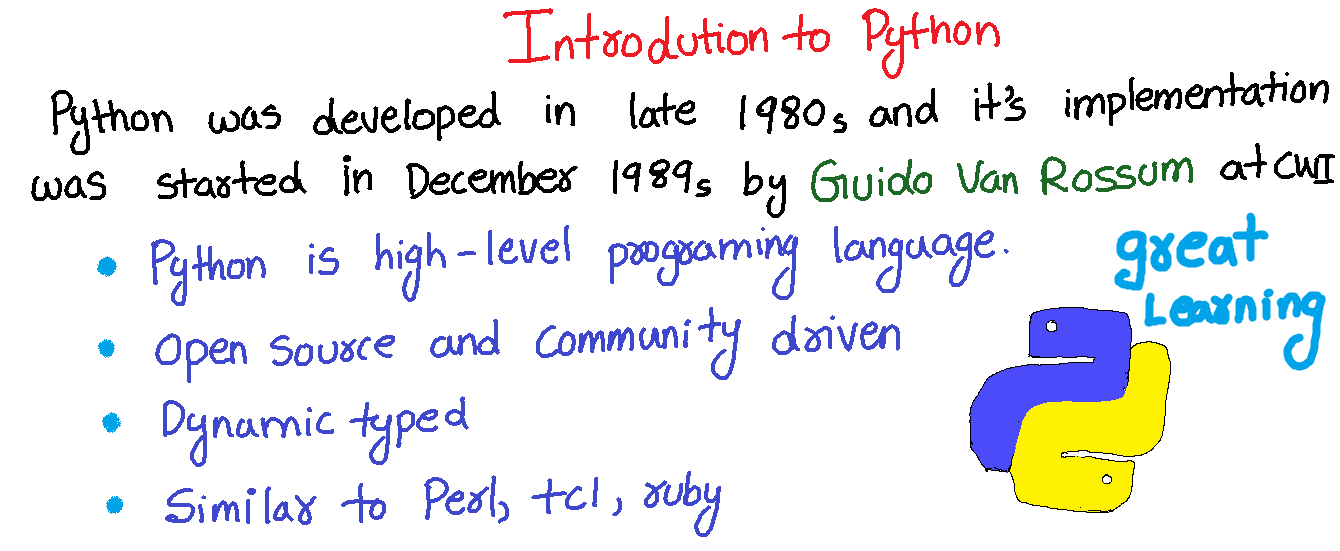 Introdution to Python
Python was developed in late 1980s and it's implementation
was started in December 1989s by Guido Van Rossum at CWI
• Python is high-level programing language.
• Open source and community driven
• Dynamic typed
• Similar to Perl, tcl, ruby
great
Learning